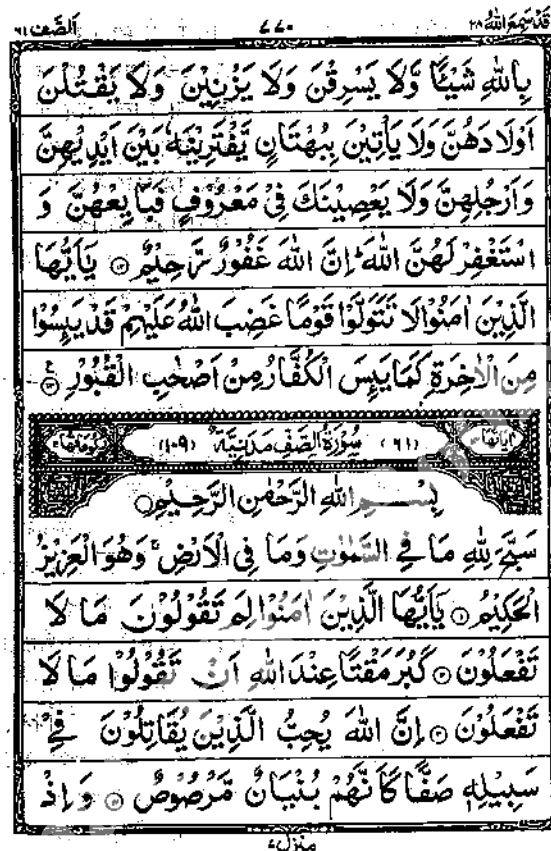 قَدْ سَمِعَ اللهُ ٢٨
٧٧٠
اَلصَّفّ ٦١
بِاللّٰهِ شَيْـًٔا وَّلَا يَسْرِقْنَ وَلَا يَزْنِيْنَ وَلَا يَقْتُلْنَ
اَوْلَادَهُنَّ وَلَا يَاْتِيْنَ بِبُهْتَانٍ يَّفْتَرِيْنَهٗ بَيْنَ اَيْدِيْهِنَّ
وَاَرْجُلِهِنَّ وَلَا يَعْصِيْنَكَ فِيْ مَعْرُوْفٍ فَبَايِعْهُنَّ وَ
اسْتَغْفِرْ لَهُنَّ اللّٰهَ ؕ اِنَّ اللّٰهَ غَفُوْرٌ رَّحِيْمٌ ۝۱۲ يٰۤاَيُّهَا
الَّذِيْنَ اٰمَنُوْا لَا تَتَوَلَّوْا قَوْمًا غَضِبَ اللّٰهُ عَلَيْهِمْ قَدْ يَىِٕسُوْا
مِنَ الْاٰخِرَةِ كَمَا يَىِٕسَ الْكُفَّارُ مِنْ اَصْحٰبِ الْقُبُوْرِ ۝۱۳ ع
اٰيَاتُهَا ١٤ (٦١) سُوْرَةُ الصَّفِّ مَدَنِيَّةٌ (١٠٩) رُكُوْعَاتُهَا ٢
بِسْمِ اللّٰهِ الرَّحْمٰنِ الرَّحِيْمِ
سَبَّحَ لِلّٰهِ مَا فِي السَّمٰوٰتِ وَمَا فِي الْاَرْضِ ۚ وَهُوَ الْعَزِيْزُ
الْحَكِيْمُ ۝۱ يٰۤاَيُّهَا الَّذِيْنَ اٰمَنُوْا لِمَ تَقُوْلُوْنَ مَا لَا
تَفْعَلُوْنَ ۝۲ كَبُرَ مَقْتًا عِنْدَ اللّٰهِ اَنْ تَقُوْلُوْا مَا لَا
تَفْعَلُوْنَ ۝۳ اِنَّ اللّٰهَ يُحِبُّ الَّذِيْنَ يُقَاتِلُوْنَ فِيْ
سَبِيْلِهٖ صَفًّا كَاَنَّهُمْ بُنْيَانٌ مَّرْصُوْصٌ ۝۴ وَاِذْ
منزل ٧